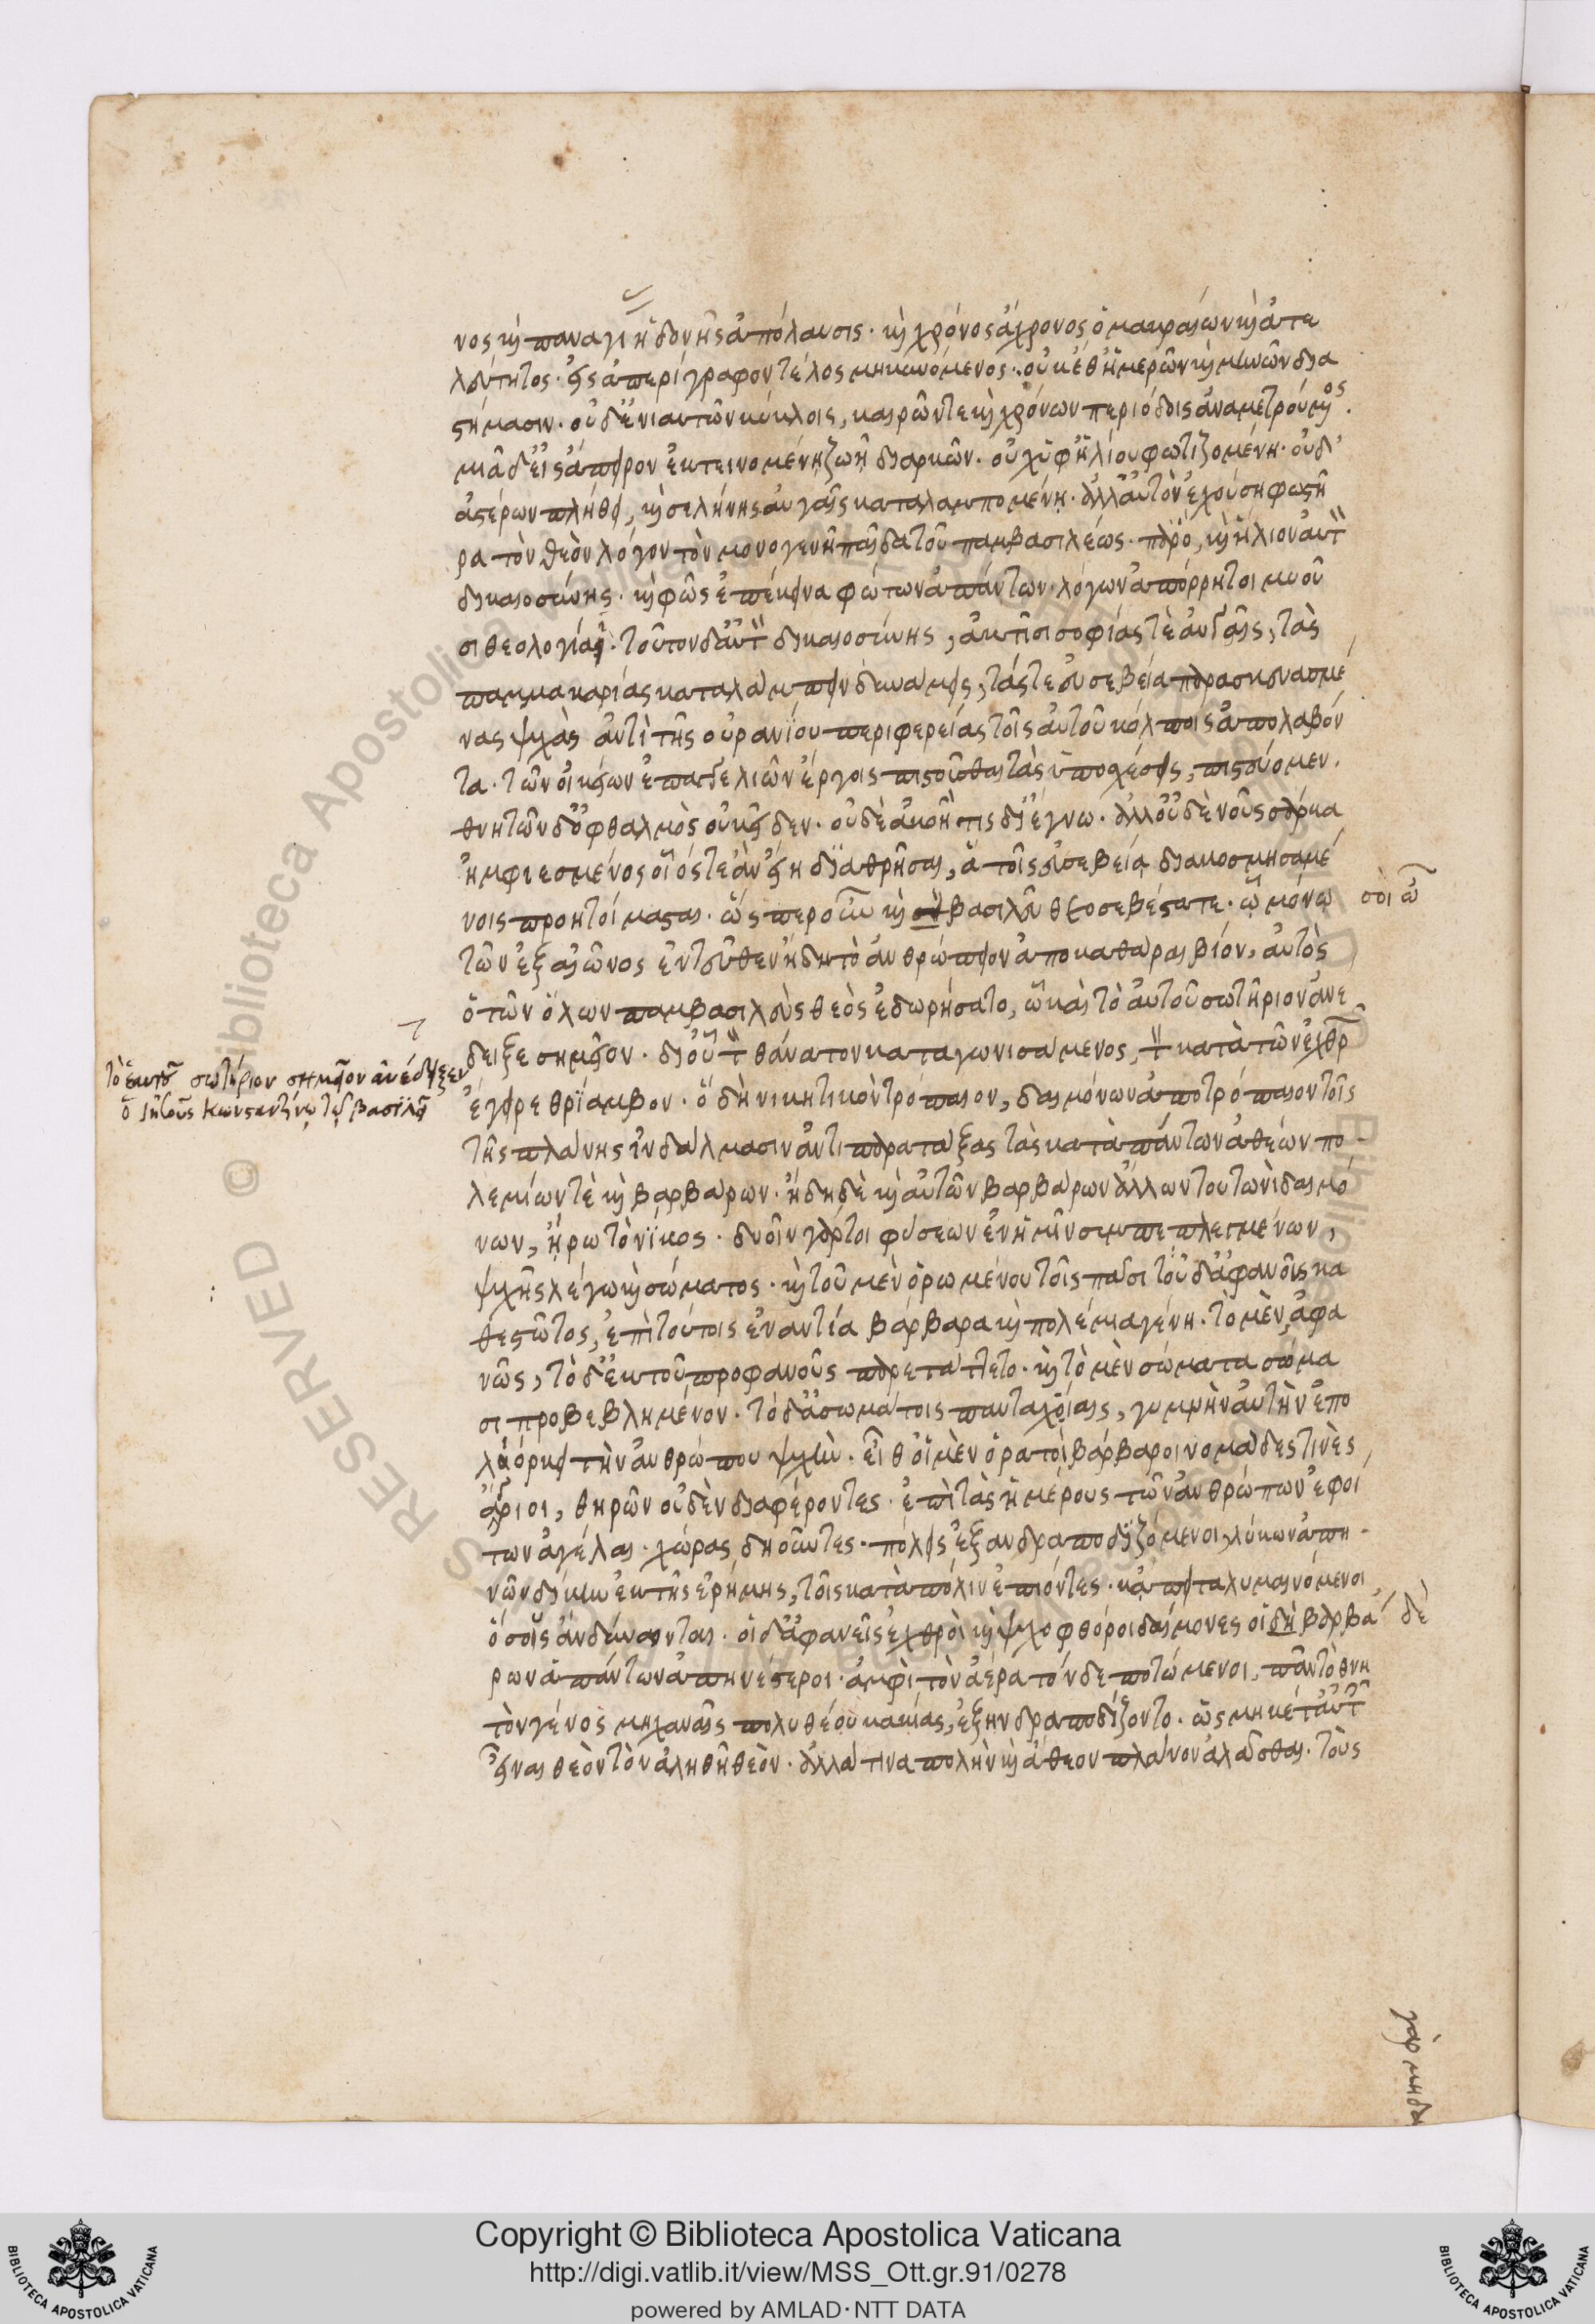 νος καὶ παναγὴ ἡδονῆς ἀπόλαυσις· καὶ χρόνος ἄχρονος ὁ μακραίων καὶ ἀτε
λεύτητος· εἰς ἀπερίγραφον τέλος μηκυνόμενος· οὐκέθ' ἡμερῶν καὶ μηνῶν δια
στήμασιν· οὐδ' ἐνιαυτῶν κύκλοις, καιρῶν τε καὶ χρόνων περιόδοις ἀναμετρούμενος.
μιᾶ δ' εἰς ἄπειρον ἐκτεινομένη ζωῆ διαρκῶν· οὐχ ὑφ' ἡλίου φωτιζομένη· οὐδ'
ἀστέρων πλήθει, καὶ σελήνης αὐγαῖς καταλαμπομένη· ἀλλ' αὐτὸν ἐχούση φωστῆ
ρα τὸν θεὸν λόγον τὸν μονογενῆ παῖδα τοῦ παμβασιλέως· παρὸ, καὶ ἥλιον αὐτὸν
δικαιοσύνης· καὶ φῶς ἐπέκεινα φώτων ἁπάντων· λόγων ἀπόρρητοι μυοῦ
σι θεολογίαι· τοῦτον δ' αὐτὸν δικαιοσύνης, ἀκτῖσι σοφίας τὲ αὐγαῖς, τὰς
παμμακαρίας καταλάμπειν δυνάμεις, τάς τε εὐσεβεία παρασκευασμέ
νας ψυχὰς ἀντὶ τῆς οὐρανίου περιφερείας τοῖς αὐτοῦ κόλποις ἀπολαβόν
τα· τῶν οἰκείων ἐπαγγελιῶν ἔργοις πιστοῦσθαι τὰς ὑποσχέσεις, πιστεύομεν.
θνητῶν δ' ὀφθαλμὸς οὐκ εἶδεν· οὐδὲ ἀκοή τις διέγνω· ἀλλ' οὐδὲ νοῦς σάρκα
ἠμφιεσμένος οἷός τε ἂν εἴη διαθρῆσαι, ἃ τοῖς εὐσεβεία διακοσμησαμέ
νοις προητοίμασται· ὥσπερ οὖν καὶ σὺ βασιλεῦ θεοσεβέστατε· ὧ μόνω
σοὶ ὧ
τῶν ἐξ αἰῶνος ἐντεῦθεν ἤδη τὸ ἀνθρώπειον ἀποκαθᾶραι βίον, αὐτὸς
ὁ τῶν ὅλων παμβασιλεὺς θεὸς ἐδωρήσατο, ὧ καὶ τὸ αὐτοῦ σωτήριον ἀνέ
δειξε σημεῖον· δι' οὗ τὸν θάνατον καταγωνισάμενος, τὸν κατὰ τῶν ἐχθρῶν
τὸ ἑαυτοῦ σωτήριον σημεῖον ἀνέδειξεν
ὁ ἰησοῦς κωνσταντίνω τῶ βασιλεῖ
ἔγειρε θρίαμβον· ὃ δὴ νικητικὸν τρόπαιον, δαιμόνων ἀποτρόπαιον τοῖς
τῆς πλάνης ἰνδάλμασιν ἀντιπαρατάξας τὰς κατὰ πάντων ἀθέων πο
λεμίων τὲ καὶ βαρβάρων· ἤδη δὲ καὶ αὐτῶν βαρβάρων ἄλλων τουτωνὶ δαιμό
νων, ἤρω τὸ νίκος· δυοῖν γάρ τοι φύσεων ἐν ἡμῖν συμπεπλεγμένων,
ψυχῆς λέγω καὶ σώματος· καὶ τοῦ μὲν ὁρωμένου τοῖς πᾶσι τοῦ δ' ἀφανοῦς κα
θεστῶτος, ἐπὶ τούτοις ἐναντία βάρβαρα καὶ πολέμια γένη· τὸ μὲν, ἀφα
νῶς, τὸ δ' ἐκ τοῦ προφανοῦς παρετάττετο· καὶ τὸ μὲν σώματα σώμα
σι προβεβλημένον· τὸ δ' ἀσωμάτοις πανταχοίαις, γυμνὴν αὐτὴν ἐπο
λιόρκει τὴν ἀνθρώπου ψυχήν· εἶθ' οἱ μὲν ὁρατοὶ βάρβαροι νομάδες τινὲς
ἄγριοι, θηρῶν οὐδὲν διαφέροντες· ἐπὶ τὰς ἡμέρους τῶν ἀνθρώπων ἐφοί
των ἀγέλας· χώρας δηοῦντες· πόλεις ἐξανδραποδιζόμενοι λύκων ἀπη
νῶν δίκην ἐκ τῆς ἐρήμης, τοῖς κατὰ πόλιν ἐπιόντες· κἄπειτα λυμαινόμενοι
ὅσοις ἂν δύναιντο· οἱ δ' ἀφανεῖς ἐχθροὶ καὶ ψυχοφθόροι δαίμονες οἱ δὴ βαρβά
δὲ
ρων ἁπάντων ἀπηνέστεροι· ἀμφὶ τὸν ἀέρα τόνδε ποτώμενοι, πᾶν τὸ θνη
τὸν γένος μηχαναῖς πολυθέου κακίας, ἐξηνδραποδίζοντο· ὡς μηκέτ' αὐτοῖς
εἶναι θεὸν τὸν ἀληθῆ θεὸν· ἀλλά τινα πολλὴν καὶ ἄθεον πλάνον ἀλᾶσθαι· τοὺς
γὰρ μηδα
Copyright © Biblioteca Apostolica Vaticana
http://digi.vatlib.it/view/MSS_Ott.gr.91/0278
powered by AMLAD·NTT DATA